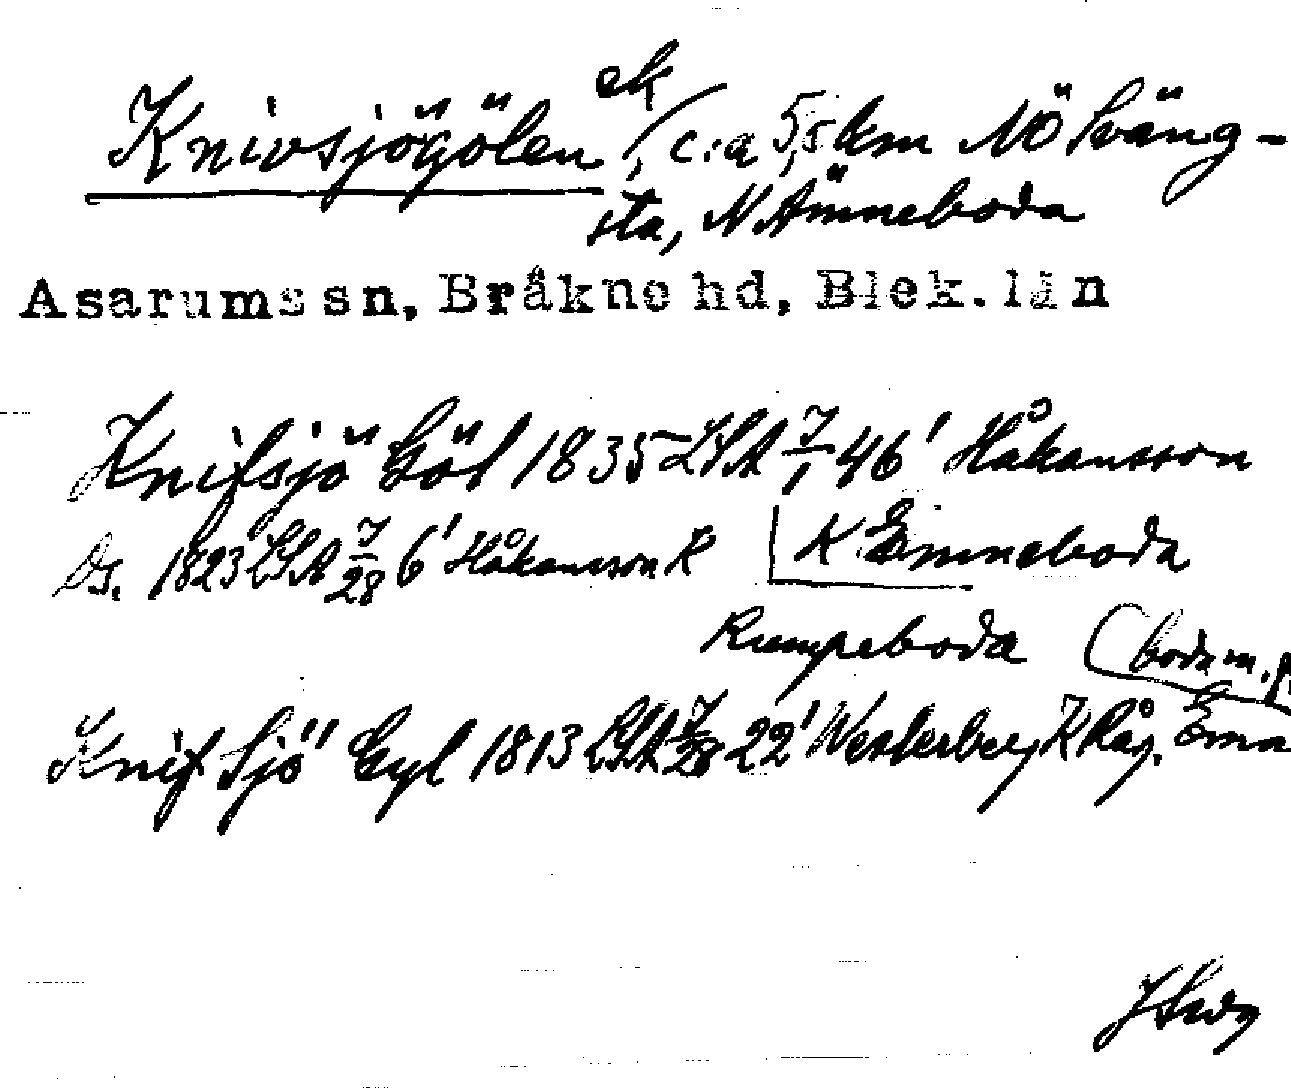 Knivsjögölen ek, c:a 5,5 km NÖ Sväng-
sta, N Ämneboda
Asarums sn, Bräkne hd, Blek. län
Knifsjö Göl 1835 LSA 7/1 46' Håkansson
Ds. 1823 LSA 7/28 6' Håkansson R K Emneboda
Rumpeboda (boda m.
Knif Sjö Gyl 1813 LSA 7/28 22' Westerberg K Råg. Ema